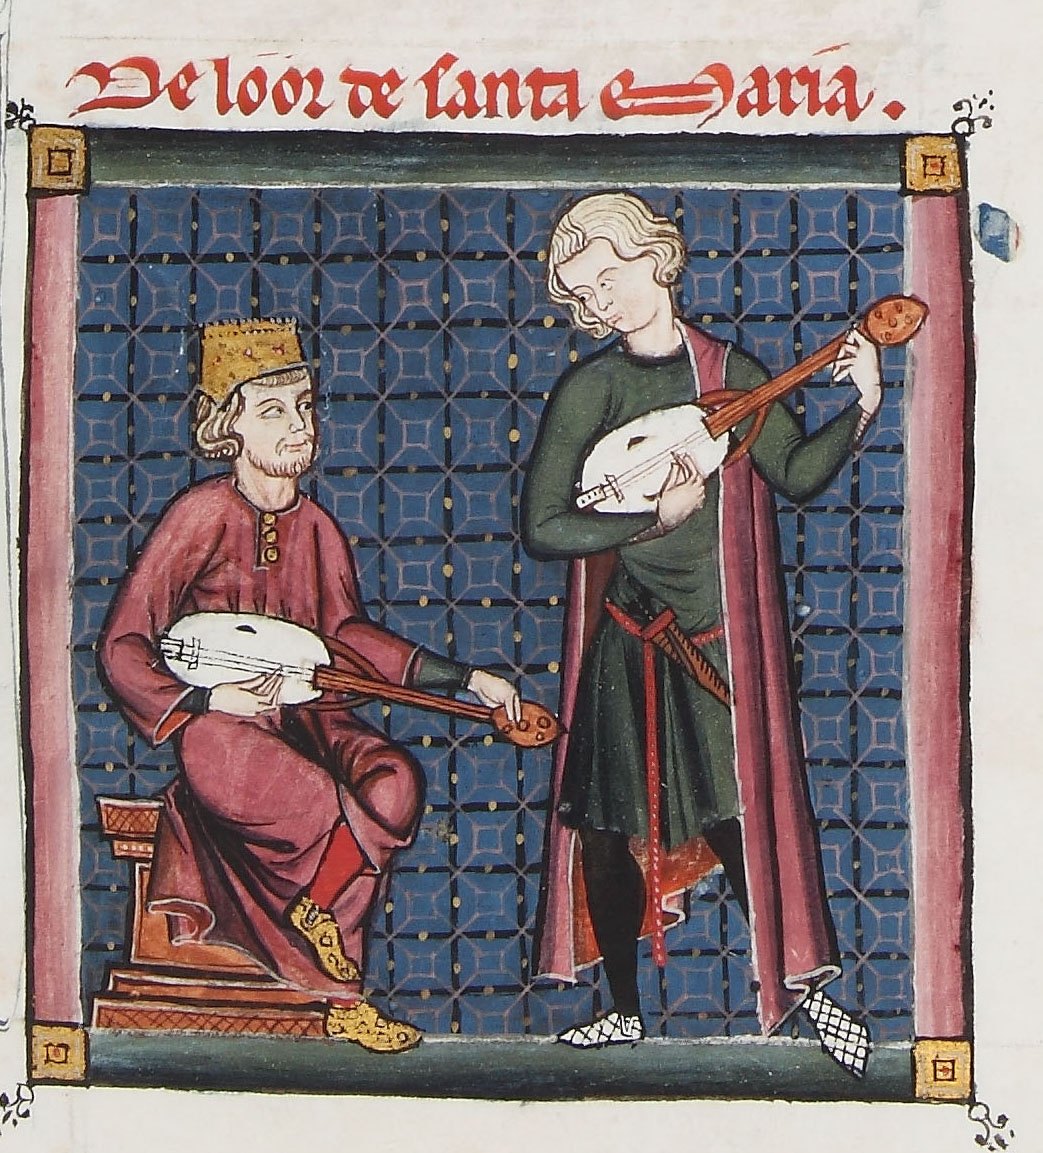 De lóór de santa Maria.